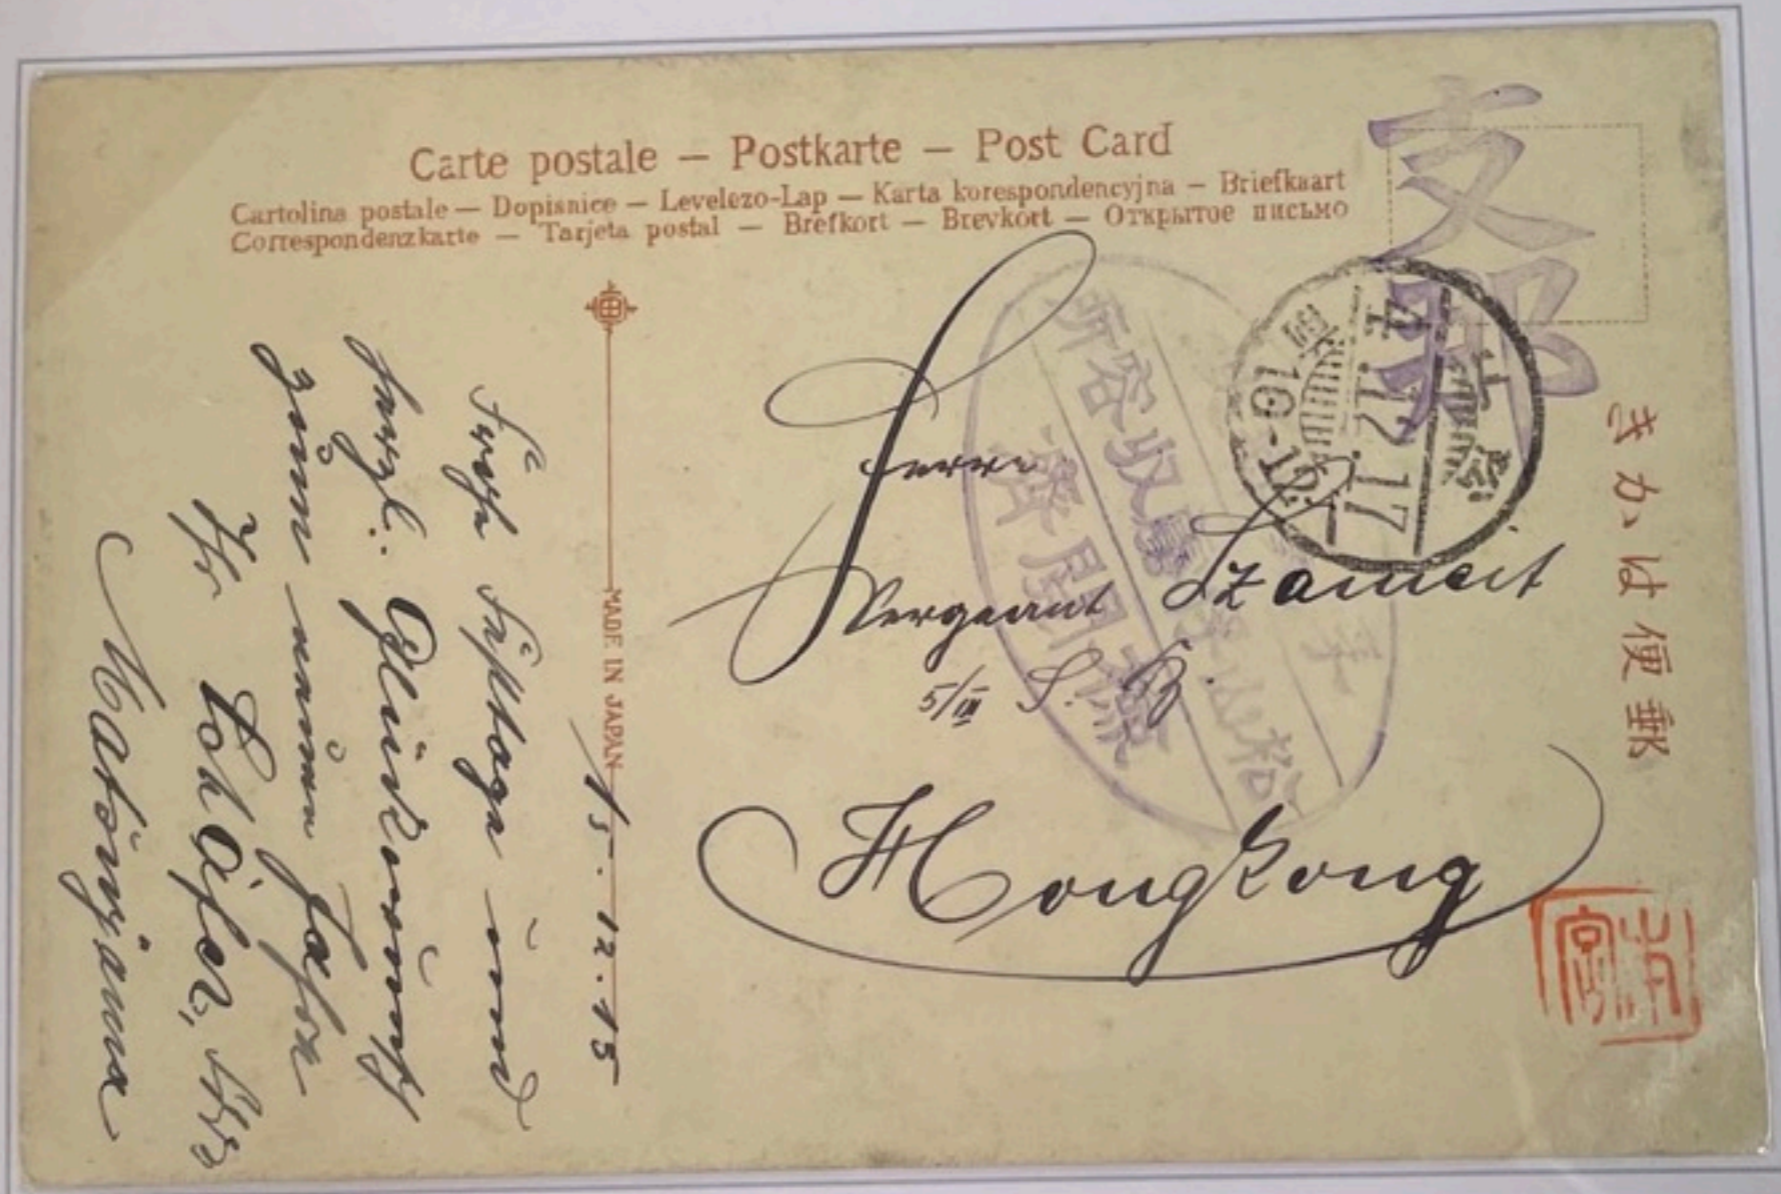 Carte postale — Postkarte — Post Card
Cartolina postale — Dopisnice — Levelezo-Lap — Karta korespondencyjna — Briefkaart
Correspondenzkarte — Tarjeta postal — Brefkort — Brevkort — Открытое письмо
支那
きかは便郵
MADE IN JAPAN
4.12.17
松山俘虜収容所
検閲済
Herrn
Sergeant
5/III S. B.
Hongkong
15.12.15
Frohe Festtage und
herzl. Glückwunsch
zum neuen Jahre
Ihr
Matsuyama